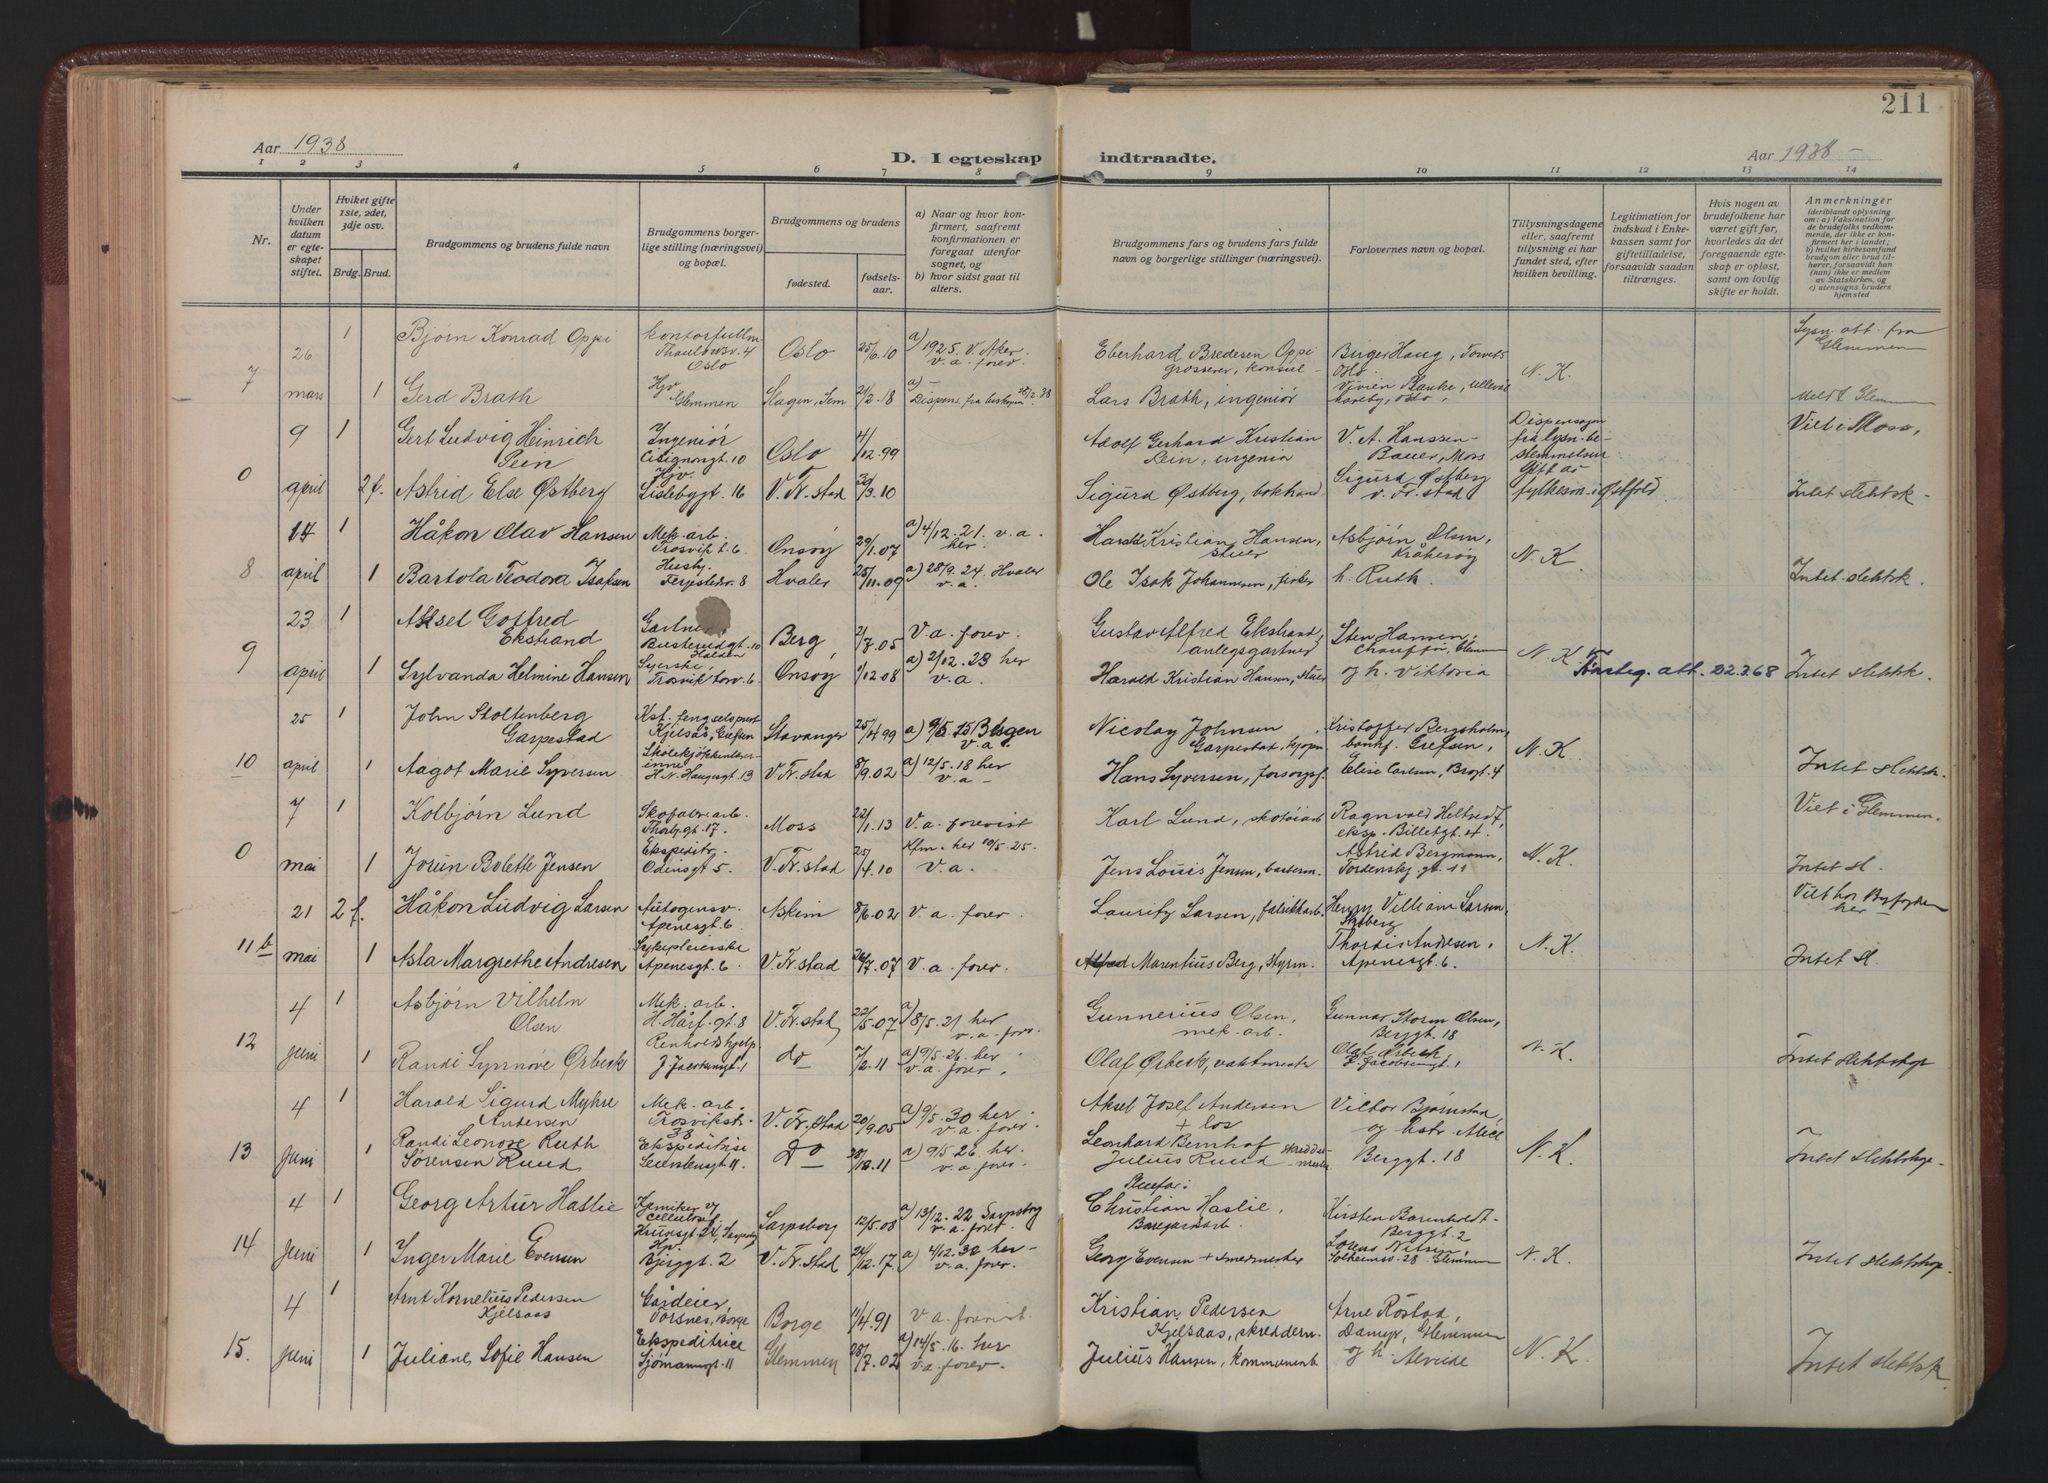 211
Aar 1938
D. I egteskap indtraadte.
Aar 1938 –
1 2 3 4 5 6 7 8 9 10 11 12 13 14
Nr.
Under hvilken datum er egteskapet stiftet.
Hviket gifte 1ste, 2det, 3dje osv.
Brdg. Brud.
Brudgommens og brudens fulde navn
Brudgommens borgerlige stilling (næringsvei) og bopæl.
Brudgommens og brudens
fødested.
fødselsaar.
a) Naar og hvor konfirmert, saafremt konfirmationen er foregaat utenfor sognet, og
b) hvor sidst gaat til alters.
Brudgommens fars og brudens fars fulde navn og borgerlige stillinger (næringsvei).
Forlovernes navn og bopæl.
Tillysningsdagene eller, saafremt tillysning ei har fundet sted, efter hvilken bevilling.
Legitimation for indskud i Enkekassen samt for giftetilladelse, forsaavidt saadan tiltrænges.
Hvis nogen av brudefolkene har været gift før, hvorledes da det foregaaende egteskap er opløst, samt om lovlig skifte er holdt.
Anmerkninger (deriblandt oplysning om: a) Vaksination for de brudefolks vedkommende, der ikke er konfirmert her i landet; b) hvilket kirkesamfund brudgom eller brud tilhører, forsaavidt han (hun) ikke er medlem av Statskirken, og c) utensogns bruders hjemsted
26 1 Bjørn Konrad Oppi kontorfullm Thaulowsv. 4 Oslo Oslo 25/6.10 a) 1925. V. Aker. v. a. forev. Eberhard Bredesen Oppi grosserer, konsul Birger Haug, Oslo Lysn. att. fra Glemmen
7 mars 1 Gerd Brath Hjv Glemmen Slagen, Sem 21/2.18 a) Dispens. fra biskopen Lars Brath, ingeniør Vivien N. K. Meldt Glemmen
9 1 Gert Ludvig Heinrich Pein Ingeniør Cisignongt. 10 Oslo 4/12.99 Adolf Gerhard Kristian Pein, ingeniø V. A. Hanssen-Bauer, Moss Dispensasjon fra lysn. bestemmelsen Viet i Moss,
0 april 2 f. Astrid Else Østberg Hjv. Lislebygt. 16 V. Fr. stad 30/3.10 Sigurd Østberg, bokhand. Sigurd Østberg v. Fr. stad Gift av fylkesm. i Østfold Intet slektsk.
14 1 Håkon Olav Hansen Mek. arb. Trosvik t. 6 Onsøy 29/1.07 a) 4/12.21. v. a. her. Harald Kristian Hansen, stuer Asbjørn Olsen, Kråkerøy N. K.
8 april 1 Bartola Teodora Isaksen Husby, Ferjestedsv. 8 Hvaler 25/11.09 a) 28/9.24. Hvaler v. a. Ole Isak Johannesen, fisker h. Ruth. Intet slektsk.
23 1 Aksel Gotfred Ekstrand Gartner, Busterudgt. 10 Halden Berg, 2/7.05 V. a. forev. Gustav Alfred Ekstrand, anlegsgartner Sten Hansen, chauffør, Glemmen N. K.
9 april 1 Sylvanda Helmine Hansen Syerske, Trosvik torv. 6 Onsøy 1/12.08 a) 2/12.23 her v. a. Harald Kristian Hansen, stuer og h. Viktoria att. 22.3.68 Intet slektsk.
25 1 John Stoltenberg Garpestad Kst. fengselsprest Kjelsås, Grefsen Stavanger 25/4.99 a) 9/5.15 Bergen v. a. Nicolay Johnsen Garpestad, kjøpm. Kristoffer Bergsholm, bankf. Grefsen, N. K.
10 april 1 Aagot Marie Syversen Skolekjøkkenlærerinne H. N. Haugesgt. 13 V. Fr. stad 8/9.02 a) 12/5.18 her v. a – Hans Syversen, forsorgsf. Elise Carlsen, Brogt. 4 Intet slektsk.
7 1 Kolbjørn Lund Skofabr. arb. Thorbj. gt. 17. Moss 22/1.13 V. a. forevist Karl Lund, skotøiarb Ragnvald Heltvedt, eksp. Billetgt. 4. Viet i Glemmen.
0 mai 1 Jorun Bolette Jensen Ekspeditr. Odinsgt 5. V. Fr. stad 25/4.10 Kfm. her 10/5.25. v. a. Jens Louis Jensen, barberm. Astrid Bergmann, Tordenskj. gt. 11 N. K. Intet sl.
21 2 f. Håkon Ludvig Larsen Autogensv. Apenesgt. 6 Askim 8/6.02 V. a. forev. Lauritz Larsen, fabrikkarb. Henry Villiam Larsen, N. K. Viet hos Byfogden her –
11b mai 1 Asla Margrethe Andresen Sykepleierske Apenesgt. 6 V. Fr. stad 26/7.07 V. a. forev. Alfred Marentius Berg, styrm. Thordis Andresen, Apenesgt. 6. Intet sl.
4 1 Asbjørn Vilhelm Olsen Mek. arb. H. Hårf. gt. 8 V. Fr. stad, 22/5.07 a) 8/5.21 her v. a. forev. Gunnerius Olsen, mek. arb. Gunnar Storm Olsen, Berggt. 18 N. K.
12 juni 1 Randi Synnøve Ørbeck Renholdshjelp J. Jacobsensgt. 1 do 7/2.11 a) 9/5.26. her v. a. forev. Olaf Ørbeck, vaktmester Olaf Ørbeck J. Jacobsensgt. 1 Intet slektskap
4 1 Harald Sigurd Myhre Andersen Mek. arb. Trosvikstr. 38 V. Fr. stad 20/9.05 a) 9/5.30 her v. a. forev. Aksel Josef Andersen + los Viktor Bjørnstad, og hstr. Alice N. K.
13 Juni 1 Randi Leonore Ruth Sørensen Ruud Ekspeditrise Glemmengt. 11. Do 28/12.11 a) 9/5 26. her. v. a. forev. Leonhard Bernhof Julius Ruud skreddermester Berggt. 18 Intet slektskap.
4 1 Georg Artur Haslie Kjemiker v/ cellulosef. Sarpsborg 12/5.08 a) 13/12.22 Sarpsborg v. a. forev. Stuefar: Christian Haslie, Kirsten Barenholdt- Berggt. 2 N. K.
14 Juni 1 Inger Marie Evensen Hjv. Bjerggt. 2 V. Fr. Stad 24/12.17. a) 4/12.32 her – v. a. forev. Georg Evensen + smedmester Solheimsv. 28 Glemmen Intet slektskap.
4 1 Arnt Kornelius Pedersen Kjelsaas Gårdeier, Torsnes, Borge Borge 11/4.91 v a. forevist. Kristian Pedersen Kjelsaas, skredderm. Arne Røstad, Damyr, Glemmen
15. juni 1 Juliane Sofie Hansen Ekspeditrice Sjømannsgt. 11 Glemmen 28/7.02 a) 14/5.16. her v. a. forev. Julius Hansen, kommunearb. og h. Alvilde N. K. Intet slektsk.